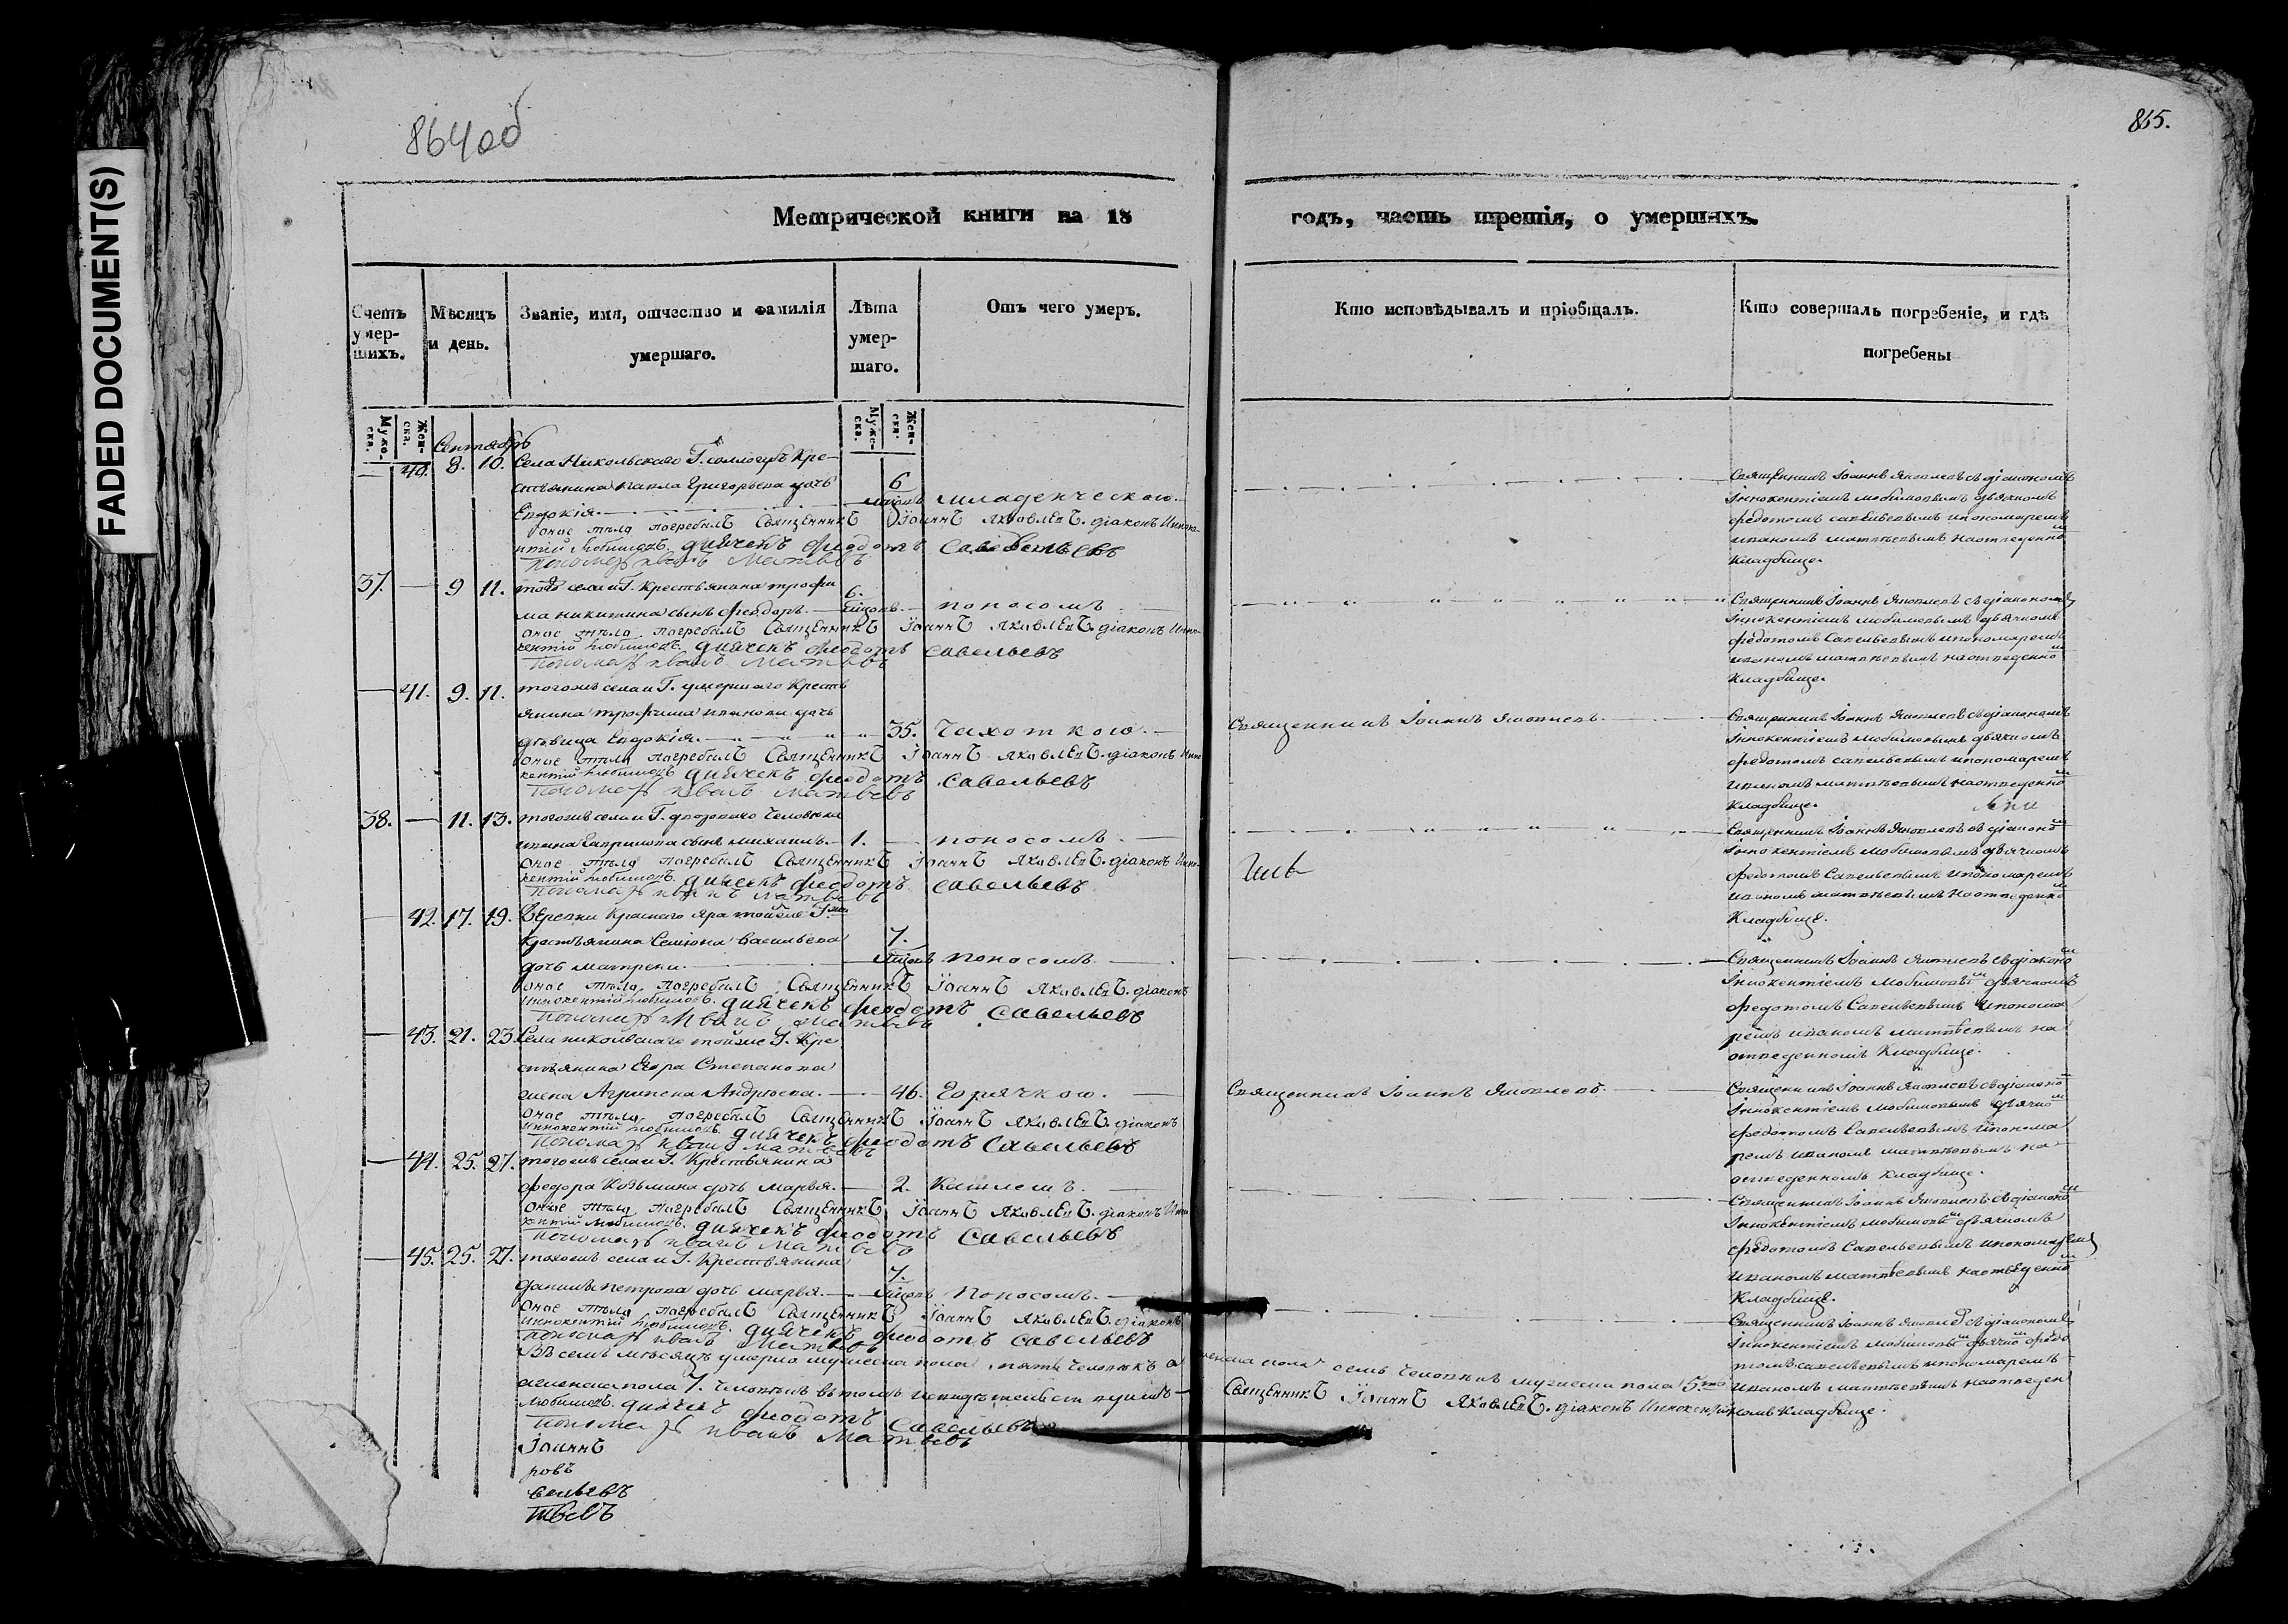 FADED DOCUMENT(S)
864об
865.
Метрической книги на 18
годъ, часть третія, о умершихъ.
Счетъ умер-шихъ.
Мѣсяцъ и день.
Званіе, имя, отчество и фамилія умершаго.
Лѣта умер-шаго.
Отъ чего умеръ.
Кто исповѣдывалъ и пріобщалъ.
Кто совершалъ погребеніе, и гдѣ погребены
Муже-ска.
Жен-ска.
Муже-ска.
Жен-ска.
Сентябрь
40. 8. 10. Села Никольскаго Г. Кре-
стьянина Павла Григорьева дочь 6
Евдокія. младенческою.
оное тѣло погребалъ Священникъ Іоаннъ Яковлевъ. діаконъ Инно-
кентій Любимовъ. дьячекъ Феодотъ Савельевъ
Пономарь Иванъ Матвѣевъ
Священникъ Іоаннъ Яковлевъ съ діакономъ
Іннокентіемъ Любимовымъ дьячкомъ
Федотомъ Савельевымъ и пономаремъ
Иваномъ Матвѣевымъ на отведенном
кладбище.
37. 9 11. того села и Г. Крестьянина Трофи
ма Никитина сынъ Феодоръ. 6. поносомъ
оное тѣло погребалъ Священникъ Іоаннъ Яковлевъ. діаконъ Инно-
кентій Любимовъ. дьячекъ Феодотъ Савельевъ
Пономарь Иванъ Матвѣевъ
Священникъ Іоаннъ Яковлевъ съ діакономъ
Іннокентіемъ Любимовымъ дьячкомъ
Федотомъ Савельевымъ и пономаремъ
Иваномъ Матвѣевымъ на отведенном
кладбище.
41. 9. 11. тогожъ села и Г. умершаго Кресть
янина Трофима Иванова дочь
дѣвица Евдокія. 35. Чахоткою.
оное тѣло погребалъ Священникъ Іоаннъ Яковлевъ. діаконъ Инно
кентій Любимовъ дьячекъ Феодотъ Савельевъ
Пономарь Иванъ Матвѣевъ
Священникъ Іоаннъ Яковлевъ.
Священникъ Іоаннъ Яковлевъ съ діакономъ
Іннокентіемъ Любимовымъ дьячкомъ
Федотомъ Савельевымъ и пономаремъ
Иваномъ Матвѣевымъ на отведенном
кладбище.
38. 11. 13. тогожъ села и Г. дворового человека
сынъ Михаилъ. 1. поносомъ
оное тѣло погребалъ Священникъ Іоаннъ Яковлевъ. діаконъ Инно-
кентій Любимовъ. дьячекъ Феодотъ Савельевъ
Пономарь Иванъ Матвѣевъ
Священникъ Іоаннъ Яковлевъ съ діаконом
Іннокентіемъ Любимовымъ дьячкомъ
Федотомъ Савельевымъ и пономаремъ
Иваномъ Матвѣевымъ на отведенном
кладбище.
42. 17. 19. Деревни Краснаго Яра тойже Г.
крестьянина Семіона Васильева 7.
дочь Матрена. поносомъ
оное тѣло погребалъ Священникъ Іоаннъ Яковлевъ. діаконъ
Иннокентій Любимовъ. дьячекъ Феодотъ Савельевъ
Пономарь Иванъ Матвѣевъ
Священникъ Іоаннъ Яковлевъ съ діаконом
Іннокентіемъ Любимовым дьячкомъ
Федотомъ Савельевымъ и понома
ремъ Иваномъ Матвѣевымъ на
отведенномъ кладбище.
43. 21. 23. Села Никольскаго тойже Г. Кре
стьянина Егора Степанова
жена Агрипена Андреева. 46. Горячкою.
оное тѣло погребалъ Священникъ Іоаннъ Яковлевъ. діаконъ
Иннокентій Любимовъ. дьячекъ Феодотъ Савельевъ
Пономарь Иванъ Матвѣевъ
Священникъ Іоаннъ Яковлевъ.
Священникъ Іоаннъ Яковлевъ съ діаконом
Іннокентіемъ Любимовымъ дьячком
Федотомъ Савельевымъ и понома
ремъ Иваномъ Матвѣевымъ на
отведенномъ кладбище.
44. 25. 27. тогожъ села и Г. Крестьянина
Федора Козьмина дочь Марья. 2. Кашлемъ.
оное тѣло погребалъ Священникъ Іоаннъ Яковлевъ. діаконъ Инно
кентій Любимовъ. дьячекъ Феодотъ Савельевъ
Пономарь Иванъ Матвѣевъ
Священникъ Іоаннъ Яковлевъ съ діаконом
Іннокентіемъ Любимовым дьячкомъ
Федотомъ Савельевымъ и пономаремъ
Иваномъ Матвѣевымъ на отведенном
кладбище.
45. 25. 27. тогожъ села и Г. Крестьянина
Данилы Петрова дочь Марья. 7. поносомъ.
оное тѣло погребалъ Священникъ Іоаннъ Яковлевъ. діаконъ
Иннокентій Любимовъ. дьячекъ Феодотъ Савельевъ
Пономарь Иванъ Матвѣевъ
Священникъ Іоаннъ Яковлев съ діакономъ
Іннокентіемъ Любимовым дьячком Федо
томъ Савельевымъ и пономаремъ
Иваномъ Матвѣевымъ на отведен
номъ кладбище.
Въ семъ мѣсяцѣ умерло мужеска пола пять человѣкъ а женска пола семь человѣкъ мужеска пола 5.
а женска пола 7. человѣкъ въ томъ и свидѣтельствуемъ Священникъ Іоаннъ Яковлевъ. діаконъ Иннокентій
Любимовъ. дьячекъ Феодотъ Савельевъ
Пономарь Иванъ Матвѣевъ
Іоаннъ
ровъ
вельевъ
твѣевъ